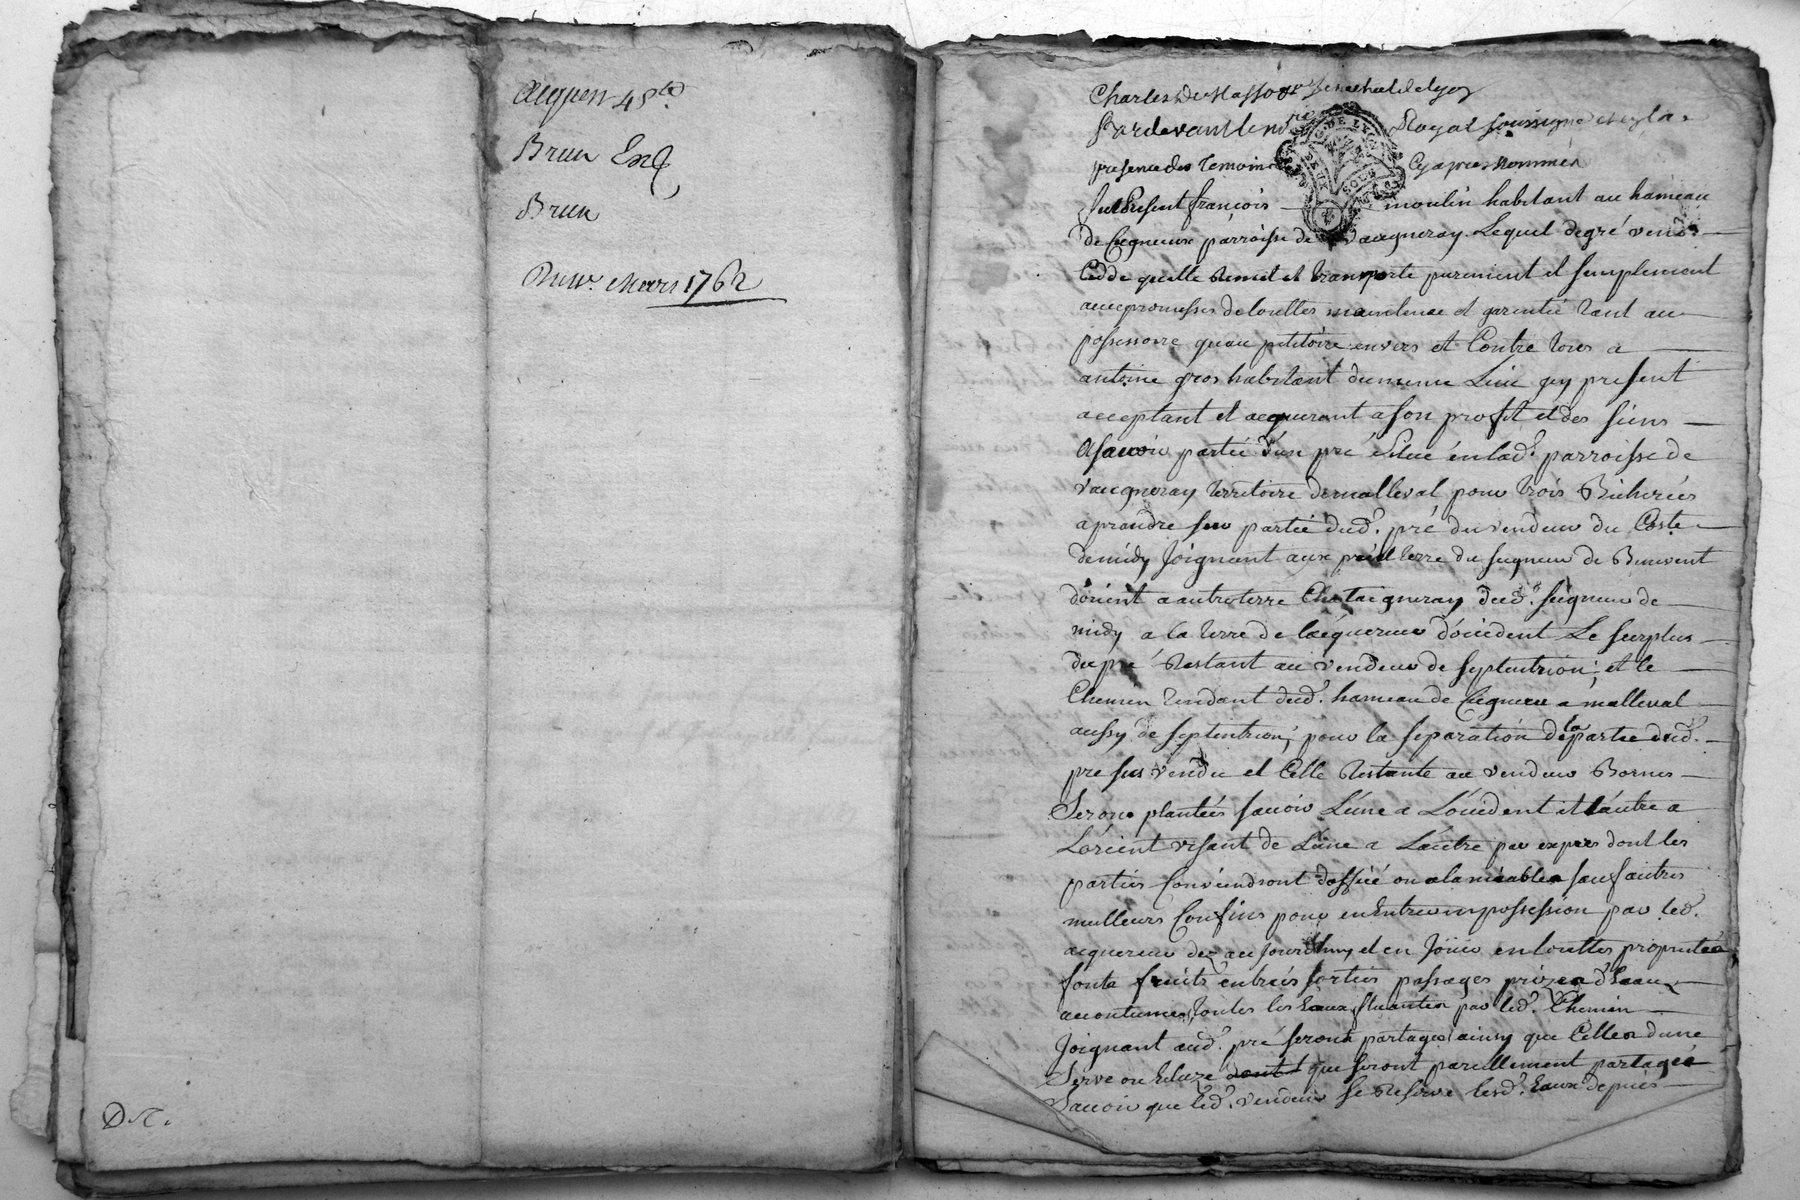 Brun
Brun
Mars 1762
D.N.
Charles de Massol Senechal de Lyon
Pardevant le no.re Royal soussigné et en la
presence des temoins Cy apres nommés
fut Present françois moulin habitant au hameau
de Cugneux parroisse de Vaugneray Lequel de gré vend
Cedde quitte Remet et transporte purement et simplement
avec promesses de touttes maintenüe et garentie tant au
possessoire quau petitoire envers et Contre tous a
antoine gros habitant du meme Lieu icy present
acceptant et acquerant a son profit et des siens
Asavoir partie d'un pré Situé en lad.e parroisse de
Vaugneray territoire de malleval pour trois Bicherées
a prendre sur partie dud.t pré du vendeur du Costé
de midy Joignant aux pré et terre du seigneur de Benevent
d'orient a autre terre Chataigneray dud.t seigneur de
midy a la terre de l'acquereur d'occident Le surplus
du pré Restant au vendeur de septentrion; et le
Chemin tendant dud.t hameau de Cugneux a malleval
aussy de septentrion; pour la separation de la partie dud.t
pré sus vendu et Celle Restante au vendeur Bornes
Seront plantées savoir L'une a L'occident et l'autre a
L'orient visant de L'une a L'autre par expers dont les
parties Conviendront d'office ou a lamiable sauf autres
meilleurs Confins pour en Entrer en possession par led.t
acquereur dez aujourdhuy et en Joüir en touttes proprietés
fonts fruits entrées sorties passages prizes d'Eaux
accoutumés, toutes les Eaux fluantes par led.t Chemin
Joignant aud.t pré seront partagés ainsy que Celles d'une
Serve ou Ecluze dont que seront pareillement partagés
Savoir que led.t vendeur se Reserve lesd.t Eaux depuis